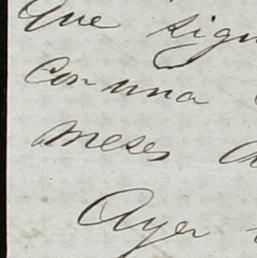 Que sigu
Con una
meses a
Ayer